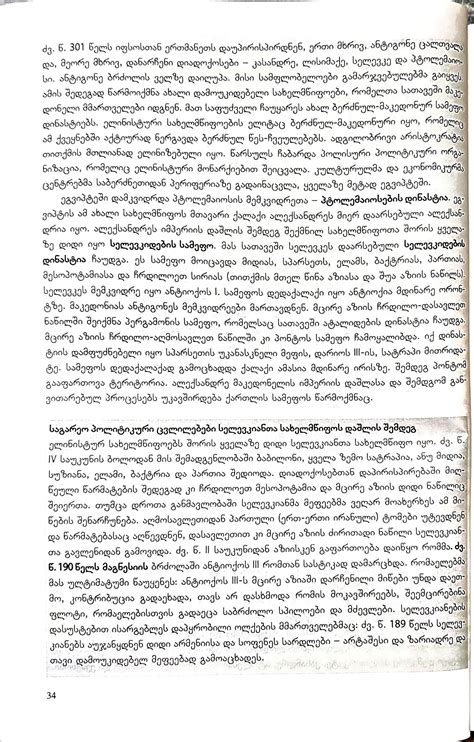 ძვ. წ. 301 წელს იფსოსთან ერთმანეთს დაუპირისპირდნენ, ერთი მხრივ, ანტიგონე ცალთვალა
და, მეორე მხრივ, დანარჩენი დიადოქოსები – კასანდრე, ლისიმაქე, სელევკე და პტოლემაიო-
სი. ანტიგონე ბრძოლის ველზე დაიღუპა. მისი სამფლობელოები გამარჯვებულებმა გაიყვეს.
ამის შედეგად წარმოიქმნა ახალი დამოუკიდებელი სახელმწიფოები, რომელთა სათავეში მაკე-
დონელი მმართველები იდგნენ. მათ საფუძველი ჩაუყარეს ახალ ბერძნულ-მაკედონურ სამეფო
დინასტიებს. ელინისტური სახელმწიფოების ელიტაც ბერძნულ-მაკედონური იყო, რომელიც
ამ ქვეყნებში აქტიურად ნერგავდა ბერძნულ წეს-ჩვეულებებს. ადგილობრივი არისტოკრატია
თითქმის მთლიანად ელინიზებული იყო. წარსულს ჩაბარდა პოლისური პოლიტიკური ორგა-
ნიზაცია, რომელიც ელინისტური მონარქიებით შეიცვალა. კულტურულმა და ეკონომიკურმა
ცენტრებმა საბერძნეთიდან პერიფერიაზე გადაინაცვლა, ყველაზე მეტად ეგვიპტეში.
ეგვიპტეში დამკვიდრდა პტოლემაიოსის მემკვიდრეთა – პტოლემაიოსების დინასტია. ეგ-
ვიპტის ამ ახალი სახელმწიფოს მთავარი ქალაქი ალექსანდრეს მიერ დაარსებული ალექსან-
დრია იყო. ალექსანდრეს იმპერიის დაშლის შემდეგ შექმნილ სახელმწიფოთა შორის ყველა-
ზე დიდი იყო სელევკიდების სამეფო. მას სათავეში სელევკეს დაარსებული სელევკიდების
დინასტია ჩაუდგა. ეს სამეფო მოიცავდა მიდიას, სპარსეთს, ელამს, ბაქტრიას, პართიას,
მესოპოტამიასა და ჩრდილოეთ სირიას (თითქმის მთელ წინა აზიასა და შუა აზიის ნაწილს).
სელევკეს მემკვიდრე იყო ანტიოქოს I. სამეფოს დედაქალაქი იყო ანტიოქია მდინარე ორონ-
ტზე. მაკედონიას ანტიგონეს მემკვიდრეები მართავდნენ. მცირე აზიის ჩრდილო-დასავლეთ
ნაწილში შეიქმნა პერგამონის სამეფო, რომელსაც სათავეში ატალიდების დინასტია ჩაუდგა.
მცირე აზიის ჩრდილო-აღმოსავლეთ ნაწილში კი პონტოს სამეფო ჩამოყალიბდა. იქ დინას-
ტიის დამფუძნებელი იყო სპარსეთის უკანასკნელი მეფის, დარიოს III-ის, სატრაპი მითრიდა-
ტე. სამეფოს დედაქალაქად გამოცხადდა ქალაქი ამასია მდინარე ირისზე. შემდეგ პონტომ
გააფართოვა ტერიტორია. ალექსანდრე მაკედონელის იმპერიის დაშლასა და შემდგომ გან-
ვითარებულ პროცესებს უკავშირდება ქართლის სამეფოს წარმოქმნაც.
საგარეო პოლიტიკური ცვლილებები სელევკიანთა სახელმწიფოს დაშლის შემდეგ
ელინისტურ სახელმწიფოებს შორის ყველაზე დიდი სელევკიანთა სახელმწიფო იყო. ძვ. წ.
IV საუკუნის ბოლოდან მის შემადგენლობაში ბაბილონი, ყველა ზემო სატრაპია, ანუ მიდია,
სუზიანა, ელამი, ბაქტრია და პართია შედიოდა. დიადოქოსებთან დაპირისპირებაში მიღ-
წეული წარმატების შედეგად კი ჩრდილოეთ მესოპოტამია და მცირე აზიის დიდი ნაწილიც
შეიერთა. თუმცა დროთა განმავლობაში სელევკიანმა მეფეებმა ვეღარ მოახერხეს ამ მი-
წების შენარჩუნება. აღმოსავლეთიდან პართული (ერთ-ერთი ირანული) ტომები უტევდნენ
და წარმატებასაც აღწევდნენ, დასავლეთით კი მცირე აზიის ძირითადი ნაწილი სელევკიან-
თა გავლენიდან გამოვიდა. ძვ. წ. II საუკუნიდან აზიისკენ გაფართოება დაიწყო რომმა. ძვ.
წ. 190 წელს მაგნესიის ბრძოლაში ანტიოქოს III რომთან სასტიკად დამარცხდა. რომაელებმა
მას ულტიმატუმი წაუყენეს: ანტიოქოს III-ს მცირე აზიაში დარჩენილი მიწები უნდა დაეთ-
მო, კონტრიბუცია გადაეხადა, თავს არ დასხმოდა რომის მოკავშირეებს, შეემცირებინა
ფლოტი, რომაელებისთვის გადაეცა საბრძოლო სპილოები და მძევლები. სელევკიანების
დასუსტებით ისარგებლეს დაპყრობილი ოლქების მმართველებმაც: ძვ. წ. 189 წელს სელევ-
კიანებს აუჯანყდნენ დიდი არმენიისა და სოფენეს სარდლები – არტაშესი და ზარიადრე და
თავი დამოუკიდებელ მეფეებად გამოაცხადეს.
34